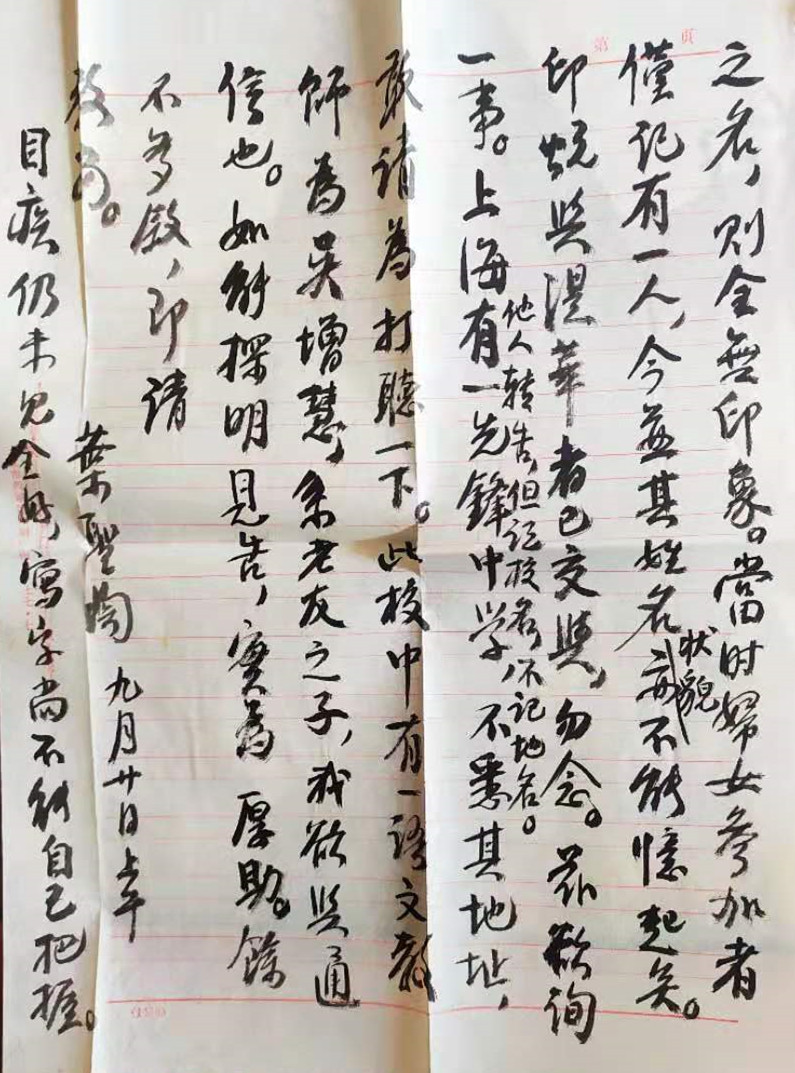 第 頁
之名，则全無印象。當时婦女参加者
僅记有一人，今並其姓名状貌亦不能憶起矣。
印蜕與湜華者已交與，勿念。茲欲询
一事。上海有一先鋒中学，不悉其地址，
他人转告，但记校名，不记地名。
敢请為打聽一下。此校中有一语文教
師為吴增慧，系老友之子，我欲與通
信也。如能探明見告，實為厚助。餘
不多敘，即请
教安。
葉聖陶 九月廿日上午
目疾仍未见全好，寫字尚不能自己把握。